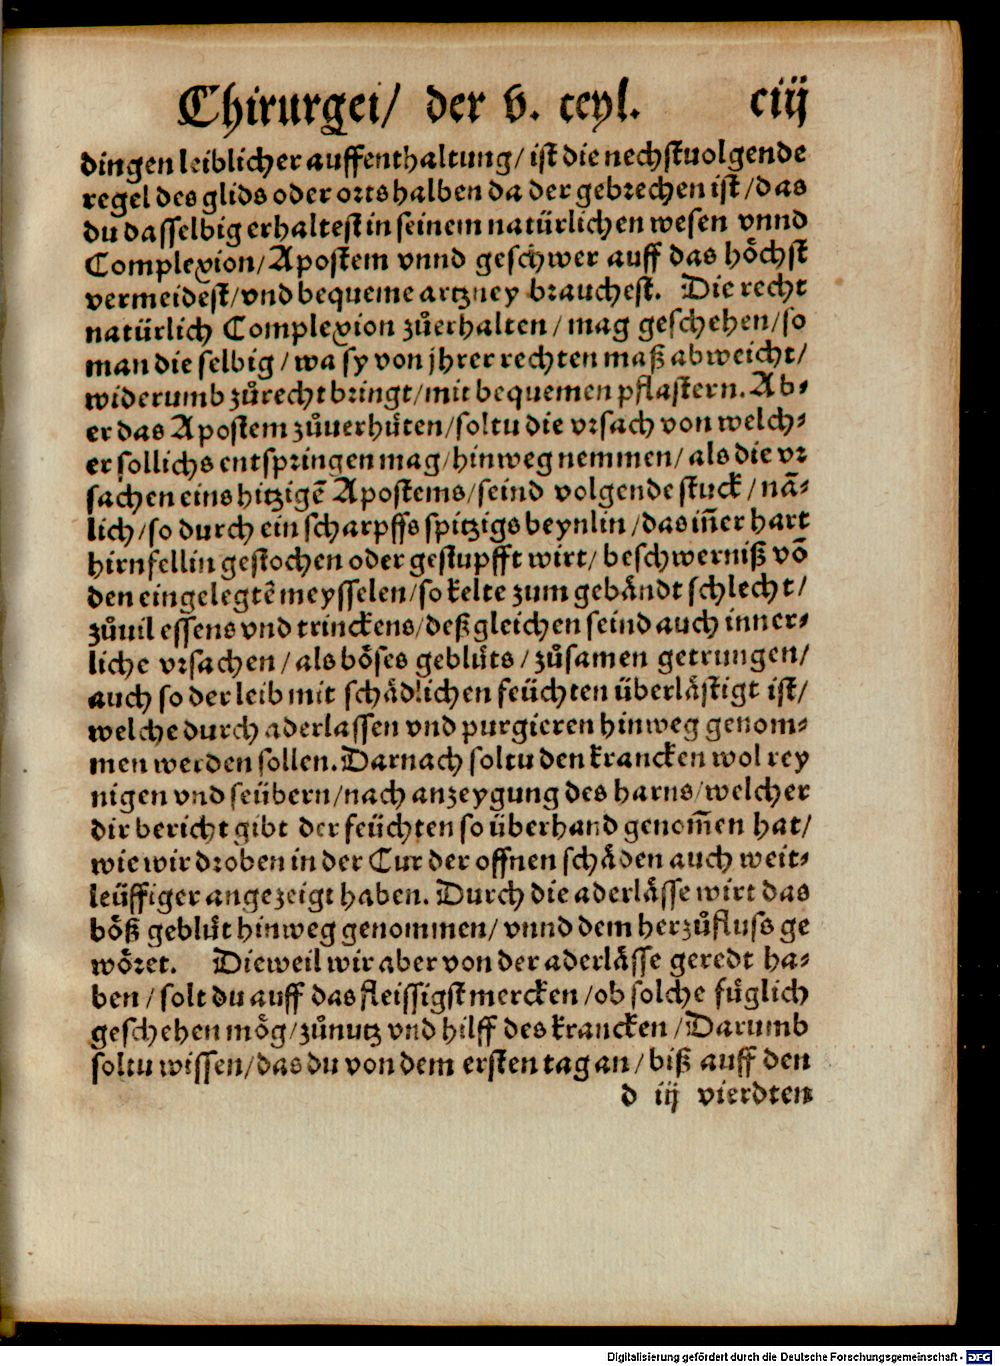 Chirurgei/ der v. teyl. ciij
dingen leiblicher auffenthaltung/ ist die nechstuolgende
regel des glids oder orts halben da der gebrechen ist/das
du dasselbig erhaltest in seinem natürlichen wesen vnnd
Complexion/Apostem vnnd geschwer auff das hoͤchst
vermeidest/vnd bequeme artzney brauchest. Die recht
natürlich Complexion zuͦerhalten/mag geschehen/so
man die selbig/wa sy von jhrer rechten maß abweicht/
widerumb zuͦrecht bringt/mit bequemen pflastern. Ab-
er das Apostem zuͦuerhuͤten/soltu die vrsach von welch-
er sollichs entspringen mag/hinweg nemmen/als die vr
sachen eins hitzigē Apostems/seind volgende stuck/nā-
lich/so durch ein scharpffs spitzigs beynlin/das iñer hart
hirnfellin gestochen oder gestupfft wirt/beschwerniß vō
den eingelegtē meysselen/so kelte zum gebaͤndt schlecht/
zuͦuil essens vnd trinckens/deßgleichen seind auch inner-
liche vrsachen/als boͤses gebluͤts/zuͦsamen getrungen/
auch so der leib mit schaͤdlichen feüchten überlaͤstigt ist/
welche durch aderlassen vnd purgieren hinweg genom-
men werden sollen. Darnach soltu den krancken wol rey
nigen vnd seübern/nach anzeygung des harns/welcher
dir bericht gibt der feüchten so überhand genom̃en hat/
wie wir droben in der Cur der offnen schaͤden auch weit-
leüffiger angezeigt haben. Durch die aderlaͤsse wirt das
boͤß gebluͤt hinweg genommen/vnnd dem herzuͦfluss ge
woͤret. Dieweil wir aber von der aderlaͤsse geredt ha-
ben/solt du auff das fleissigst mercken/ob solche fuͤglich
geschehen moͤg/zuͦnutz vnd hilff des krancken/Darumb
soltu wissen/das du von dem ersten tag an/biß auff den
d iij vierdten
Digitalisierung gefördert durch die Deutsche Forschungsgemeinschaft - DFG